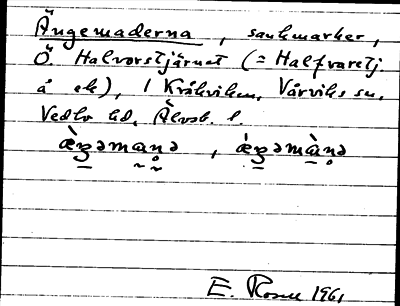 Ängemaderna, sankmarker,
Ö Halvorstjärnet (= Halfvarstj.
å ek), i Kråkviken, Vårviks sn,
Vedbo hd, Älvsb. l.
E. Rosell 1961